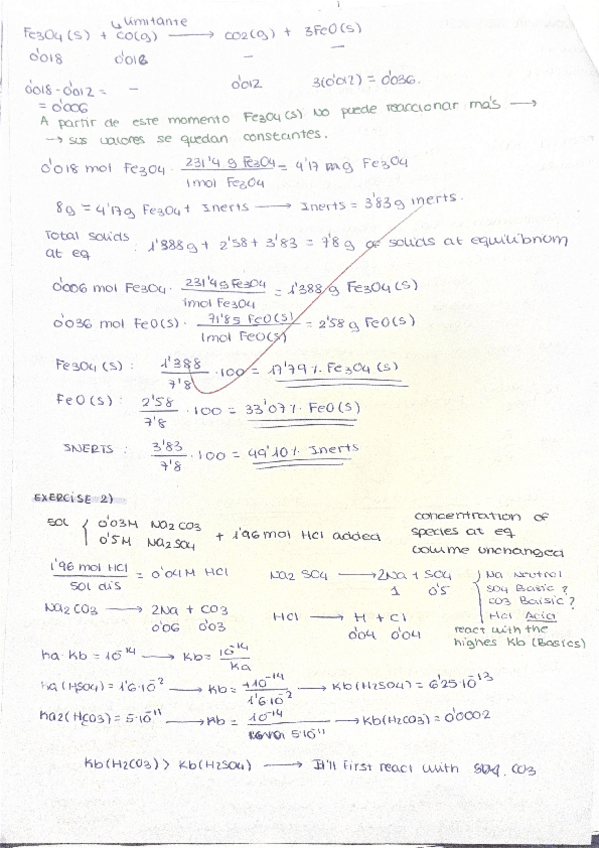 ↳ limitante
Fe3O4(s) + CO(g) ⟶ CO2(g) + 3FeO(s)
0'018 0'012 – –
0'018-0'012 = – 0'012 3(0'012) = 0'036.
= 0'006
A partir de este momento Fe3O4(s) no puede reaccionar más ⟶
→ sus valores se quedan constantes.
0'018 mol Fe3O4 · 231'4 g Fe3O4 / 1mol Fe3O4 = 4'17 g Fe3O4
8g = 4'17g Fe3O4 + Inerts ⟶ Inerts = 3'83g inerts.
Total solids at eq : 1'388g + 2'58 + 3'83 = 7'8 g of solids at equilibrium
0'006 mol Fe3O4 · 231'4g Fe3O4 / 1mol Fe3O4 = 1'388 g Fe3O4(s)
0'036 mol FeO(s) · 71'8g FeO(s) / 1mol FeO(s) = 2'58g FeO(s)
Fe3O4(s) : 1'388 / 7'8 · 100 = 17'79 %. Fe3O4(s)
FeO(s) : 2'58 / 7'8 · 100 = 33'07 %. FeO(s)
INERTS : 3'83 / 7'8 · 100 = 49'10 %. Inerts
EXERCISE 2)
50L { 0'03M Na2CO3
0'5M Na2SO4 + 1'96 mol HCl added
concentration of
species at eq
volume unchanged
1'96 mol HCl / 50L dis = 0'04M HCl
Na2SO4 ⟶ 2Na + SO4
1 0'5
Na Neutral
SO4 Basic ?
CO3 Baisic ?
HCl Acid
react with the
highes Kb (Basics)
Na2CO3 ⟶ 2Na + CO3
0'06 0'03
HCl ⟶ H + Cl
0'04 0'04
Ka · Kb = 10^-14 ⟶ Kb = 10^-14 / Ka
Ka(HSO4) = 1'6·10^-2 ⟶ Kb = 10^-14 / 1'6·10^-2 ⟶ Kb(H2SO4) = 6'25·10^-13
Ka2(HCO3) = 5·10^-11 ⟶ Kb = 10^-14 / 5·10^-11 ⟶ Kb(H2CO3) = 0'0002
Kb(H2CO3) > Kb(H2SO4) ⟶ It'll first react with CO3